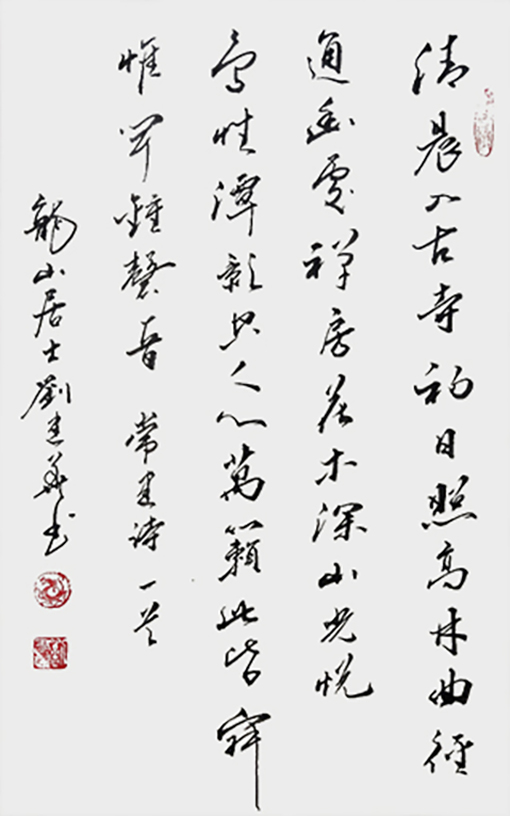 清晨入古寺初日照高林曲徑
通幽處禅房花木深山光悦
鳥性潭影空人心萬籟此皆寂
惟闻鐘磬音 常建诗一首
龍山居士劉建義书